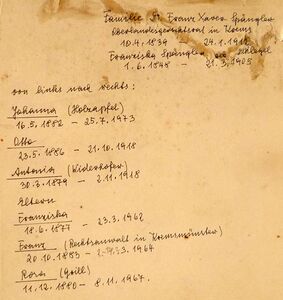 Familie Dr. Franz Xaver Spängler
Oberlandesgerichtsrat in Krems
10.4.1839 24.1.1912
Franziska Spängler geb. Schlegel
1.6.1848 - 21.3.1905
von links nach rechts:
Johanna (Holzapfel)
16.5.1882 - 25.7.1973
Otto
23.5.1886 - 21.10.1918
Antonia (Widerhofer)
30.3.1879 - 2.11.1918
Eltern
Franziska
18.6.1877 - 23.3.1962
Franz (Rechtsanwalt in Kremsmünster)
20.10.1883 - 1964
Rosa (Grill)
11.12.1880 - 8.11.1967.